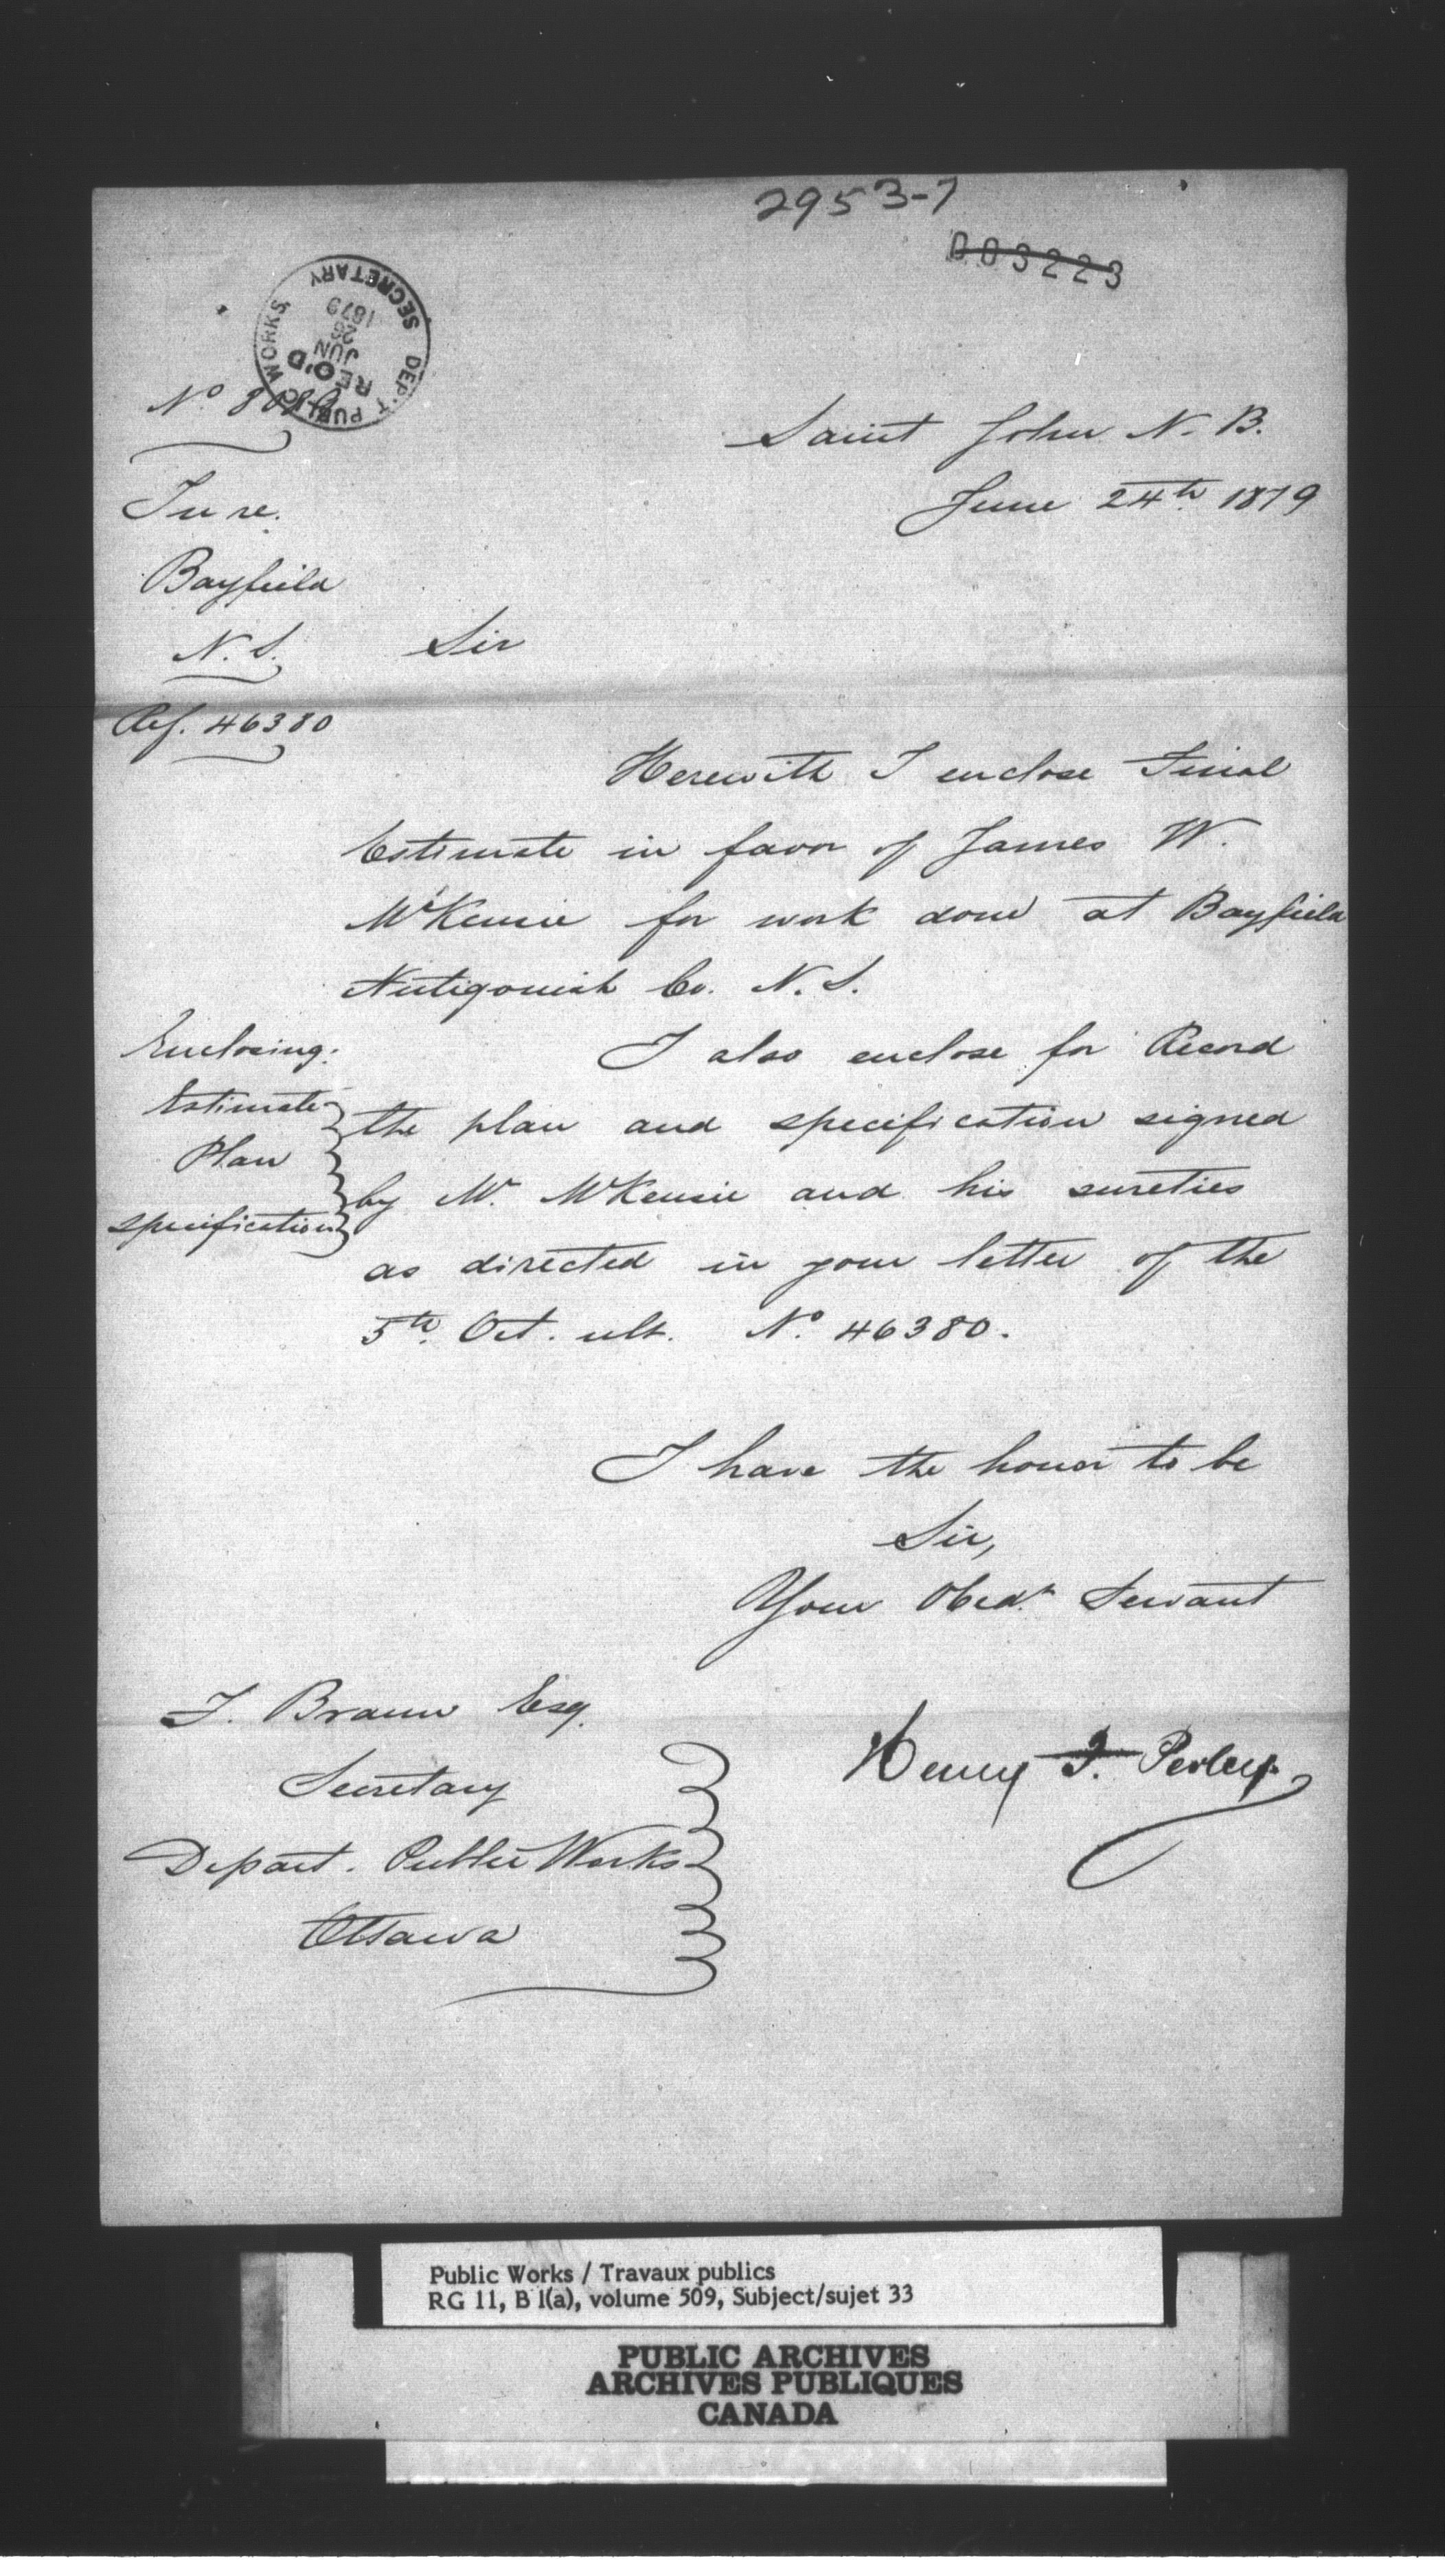 2953-7
003223
DEP'T PUBLIC WORKS
SECRETARY
REC'D
JUN
28
1879
No
Saint John N. B.
June 24th 1879
In re.
Bayfield
N. S.
Sir
Ref. 46380
Herewith I enclose Final
Estimate in favor of James W.
McKensie for work done at Bayfield
Antigonish Co. N. S.
Enclosing:
Estimate
Plan
specification
I also enclose for Record
the plan and specification signed
by Mr. McKensie and his sureties
as directed in your letter of the
5th Oct. ult. No. 46380.
I have the honor to be
Sir,
Your Obedt Servant
Henry F. Perley
F. Braun Esq.
Secretary
Depart. Public Works
Ottawa
Public Works / Travaux publics
RG 11, B 1(a), volume 509, Subject/sujet 33
PUBLIC ARCHIVES
ARCHIVES PUBLIQUES
CANADA